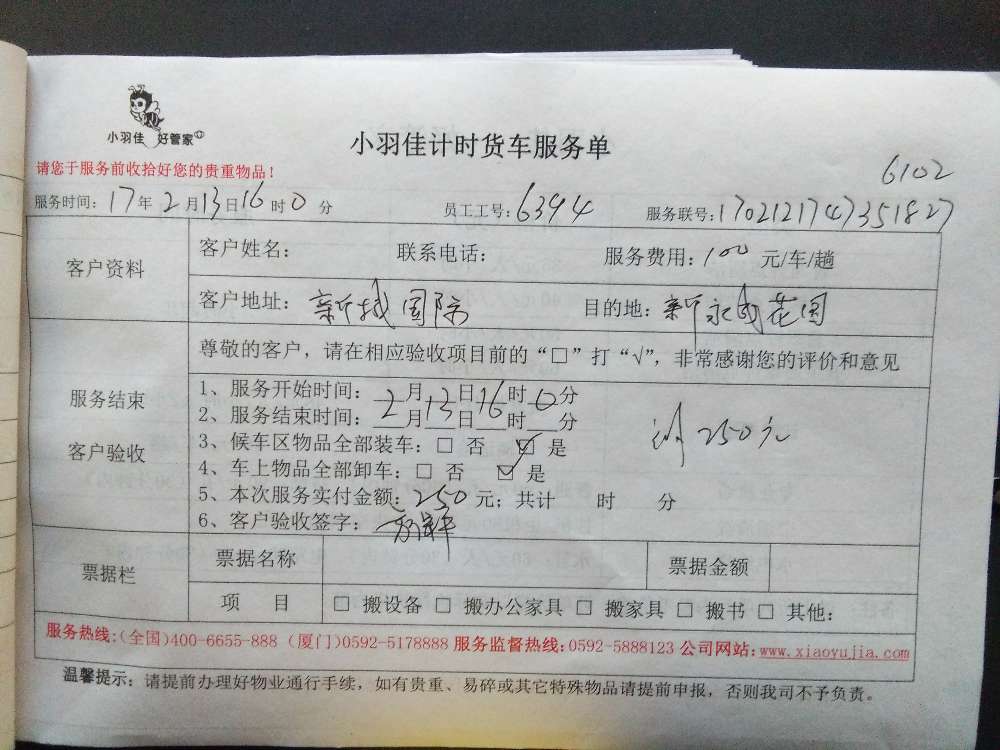 小羽佳 好管家
小羽佳计时货车服务单
6102
请您于服务前收拾好您的贵重物品！
服务时间：17年2月13日16时0分 员工工号：6394 服务联号：1702121747351827
客户资料
客户姓名： 联系电话： 服务费用：100元/车/趟
客户地址：新城国际 目的地：新永成花园
服务结束
客户验收
尊敬的客户，请在相应验收项目前的“□”打“√”，非常感谢您的评价和意见
1、服务开始时间：2月13日16时0分
2、服务结束时间：__月__日__时__分
3、候车区物品全部装车：□ 否 ☑ 是
4、车上物品全部卸车：□ 否 ☑ 是
5、本次服务实付金额：250元；共计 时 分
6、客户验收签字：
250元
票据栏
票据名称 票据金额
项 目 □ 搬设备 □ 搬办公家具 □ 搬家具 □ 搬书 □ 其他：
服务热线:(全国)400-6655-888 (厦门)0592-5178888 服务监督热线:0592-5888123 公司网站:www.xiaoyujia.com
温馨提示：请提前办理好物业通行手续，如有贵重、易碎或其它特殊物品请提前申报，否则我司不予负责。